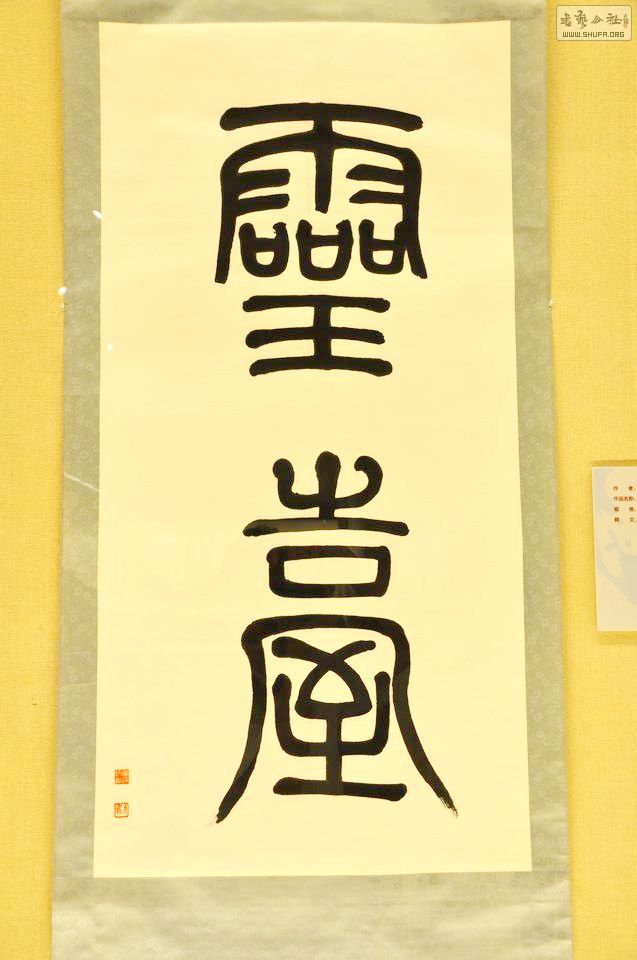 靈
臺
书艺公社
WWW.SHUFA.ORG
作 者
作品名称
规 格
释 文